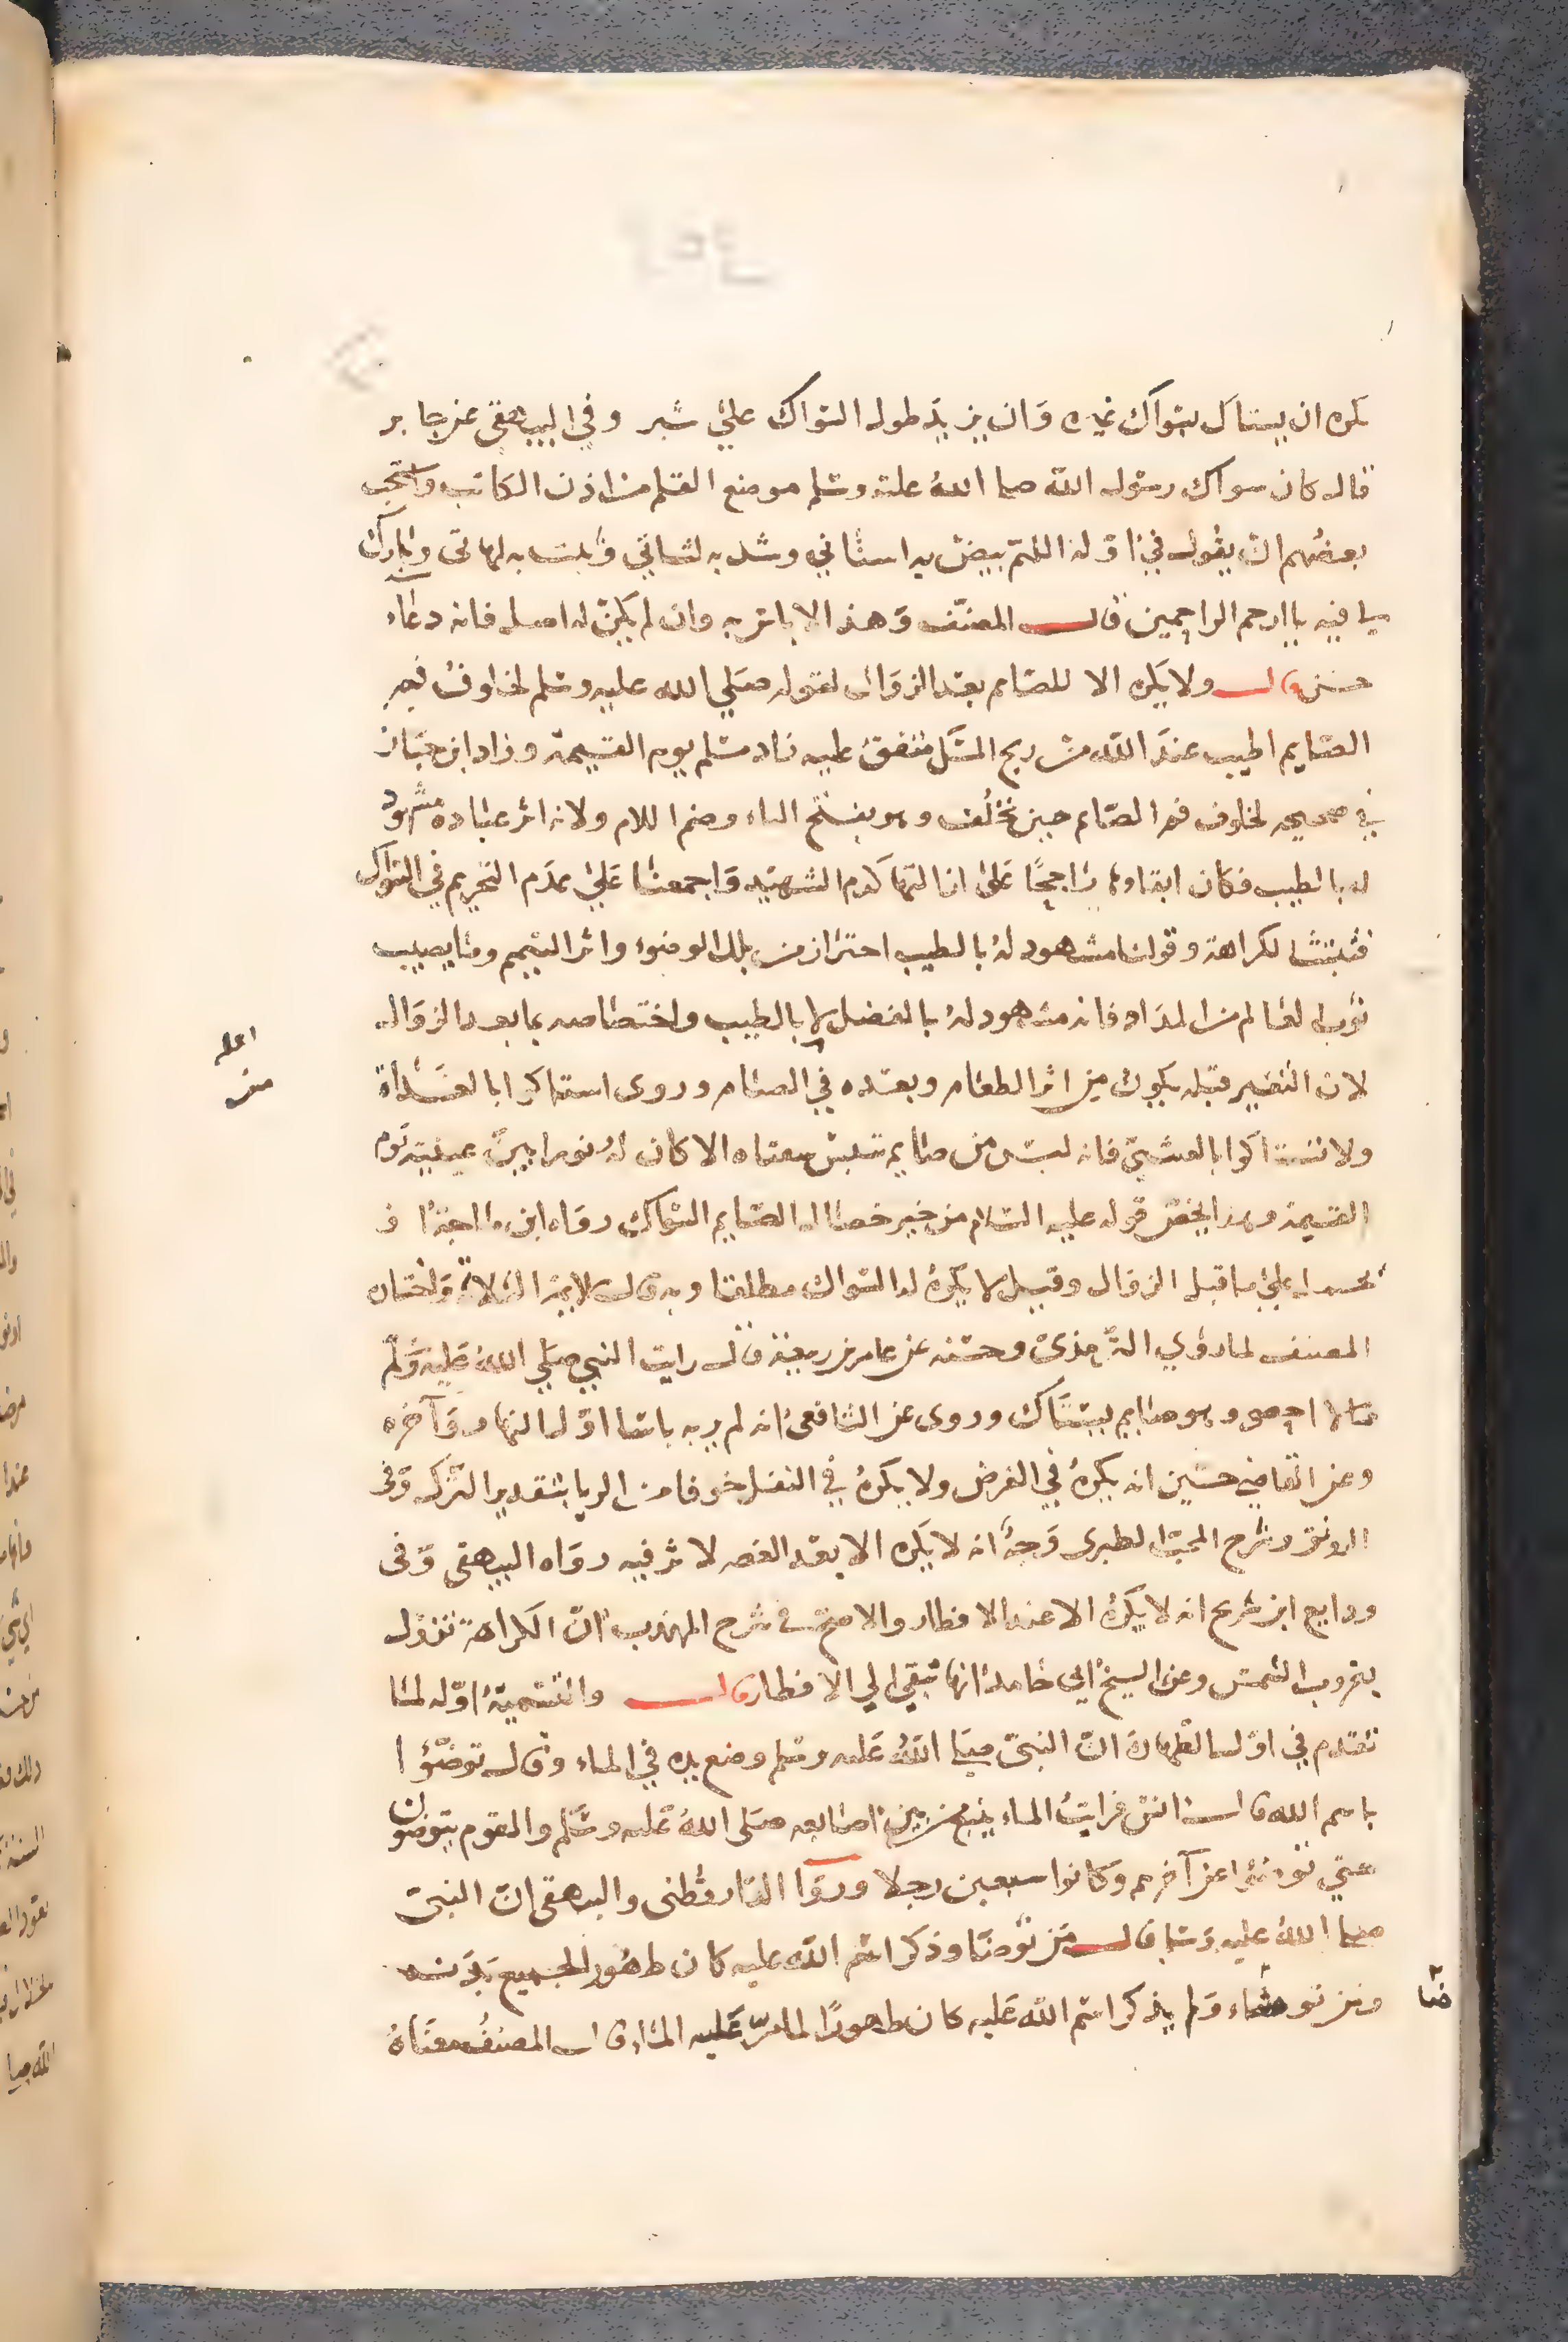 يكره ان يستاك بسواك غيره وان يزيد طول السواك على شبر وفي البيهقي عن جابر
قال كان سواك رسول الله صلى الله عليه وسلم موضع القلم من اذن الكاتب واستحب
بعضهم ان يقول في اوله اللهم بيض به اسناني وشد به لثاتي وثبت به لهاتي وبارك
لي فيه يا ارحم الراحمين قال المصنف وهذا لا باس به وان لم يكن له اصل فانه دعاء
حسن قال ولا يكره الا للصايم بعد الزوال لقوله صلي الله عليه وسلم لخلوف فم
الصايم اطيب عند الله من ريح المسك متفق عليه زاد مسلم يوم القيمة وزاد ابن حبان
في صحيحه لخلوف فم الصايم حين تخلف وهو بفتح الياء وضم اللام ولانه اثر عباده مشهود
له بالطيب فكان ابقاوه راجحا على ازالته كدم الشهيد واجمعنا علي عدم التحريم في السواك
فثبتت الكراهة وقولنا مشهود له بالطيب احتراز من بلل الوضوء واثر التيمم وما يصيب
ثوب العالم من المداد فانه مشهود له بالفضل لا بالطيب واختصاصه بما بعد الزوال
لان التغير قبله يكون من اثر الطعام وبعده في الصيام وروى استاكوا بالغداة
ولا تستاكوا بالعشي فانه ليس من صايم تيبس شفتاه الا كان له نورا بين عينيه يوم
القيمة وهذا يخص قوله عليه السلام من خير خصال الصايم السواك رواه ابن ماجة او
يحمل علي ما قبل الزوال وقيل لا يكره له السواك مطلقا وبه قال الايمة الثلاثة واختاره
المصنف لما روي الترمذى وحسنه عن عامر بن ربيعة قال رايت النبي صلي الله عليه وسلم
ما لا احصى وهو صايم يستاك وروى عن الشافعى انه لم ير به باسا اول النهار وآخره
وعن القاضي حسين انه يكره في الفرض ولا يكره في النفل خوفا من الريا بتقدير التركه وفى
الرونق وشرح المحب الطبرى وجه انه لا يكره الا بعد العصر لاثر فيه رواه البيهقى وفى
ودايع ابن سريج انه لا يكره الا عند الافطار والاصح في شرح المهذب ان الكراهة تزول
بغروب الشمس وعن الشيخ ابي حامد انها تبقي الي الافطار قال والتسمية اوله لما
تقدم في اول الطهارة ان النبي صلى الله عليه وسلم وضع يده في الماء وقال توضؤا
باسم الله قال انس فرايت الماء ينبع من بين اصابعه صلى الله عليه وسلم والقوم يتوضون
حتي توضئوا عن آخرهم وكانوا سبعين رجلا وروا الدارقطنى والبيهقى ان النبي
صلى الله عليه وسلم قال من توضا وذكر اسم الله عليه كان طهورا لجميع بدنه
ومن توضاء ولم يذكر اسم الله عليه كان طهورا لما مر عليه الماء قال المصنف معناه
ضا